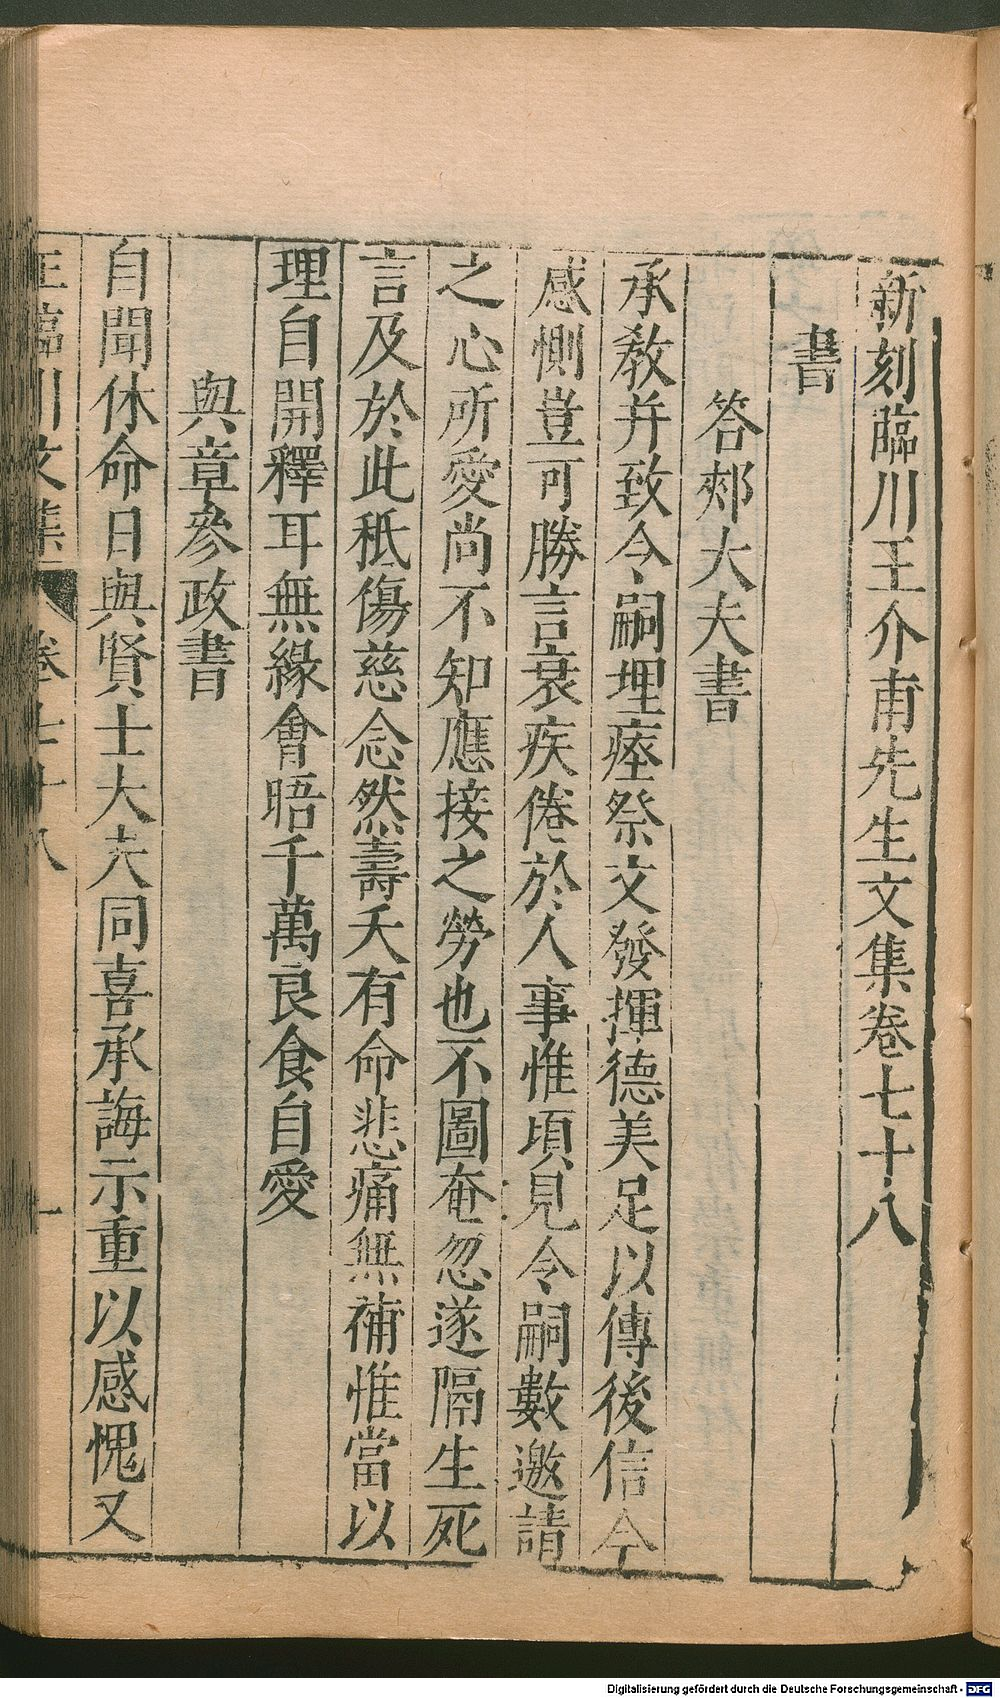 新刻臨川王介甫先生文集卷七十八
書
答郟大夫書
承教并致令嗣埋瘞祭文發揮德美足以傳後信今
感惻豈可勝言衰疾倦於人事惟頃見令嗣數邀請
之心所愛尚不知應接之勞也不圖奄忽遂隔生死
言及於此秪傷慈念然壽夭有命悲痛無補惟當以
理自開釋耳無緣會晤千萬良食自愛
與章參政書
自聞休命日與賢士大夫同喜承誨示重以感愧又
王臨川文集 卷七十八 一
Digitalisierung gefördert durch die Deutsche Forschungsgemeinschaft - DFG